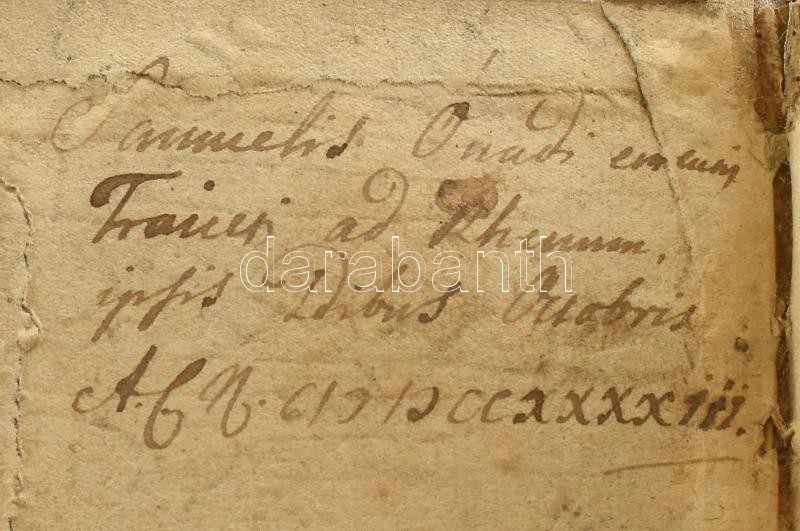 Samuelis Ónadi
Traiecti ad Rhenum,
ipsis Idibus Octobris
A. C. N. CIƆIƆCCXXXXIII.
darabanth